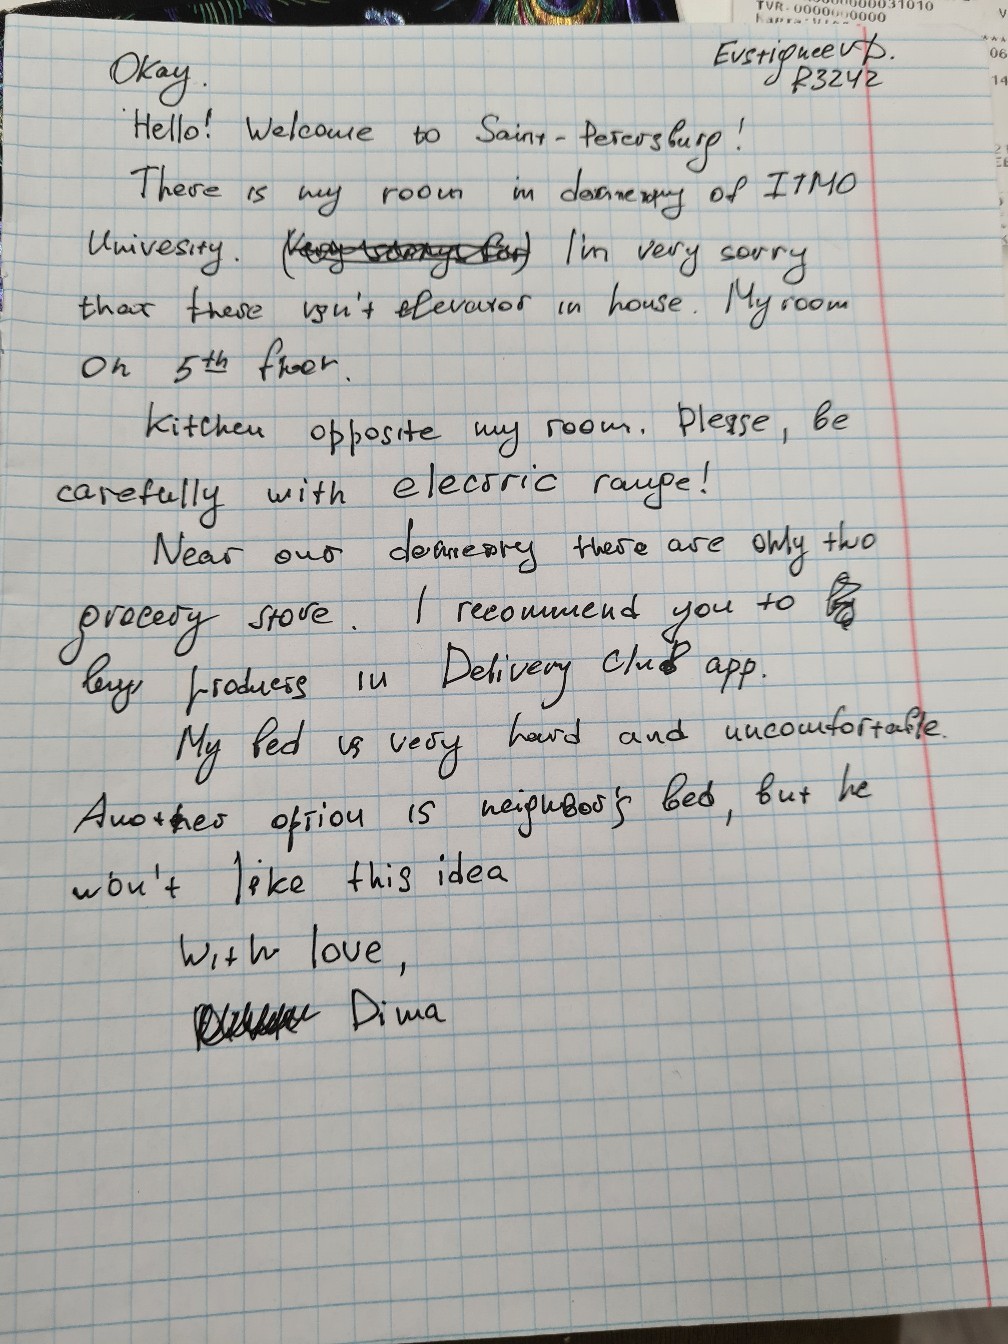 TVR: 0000000000031010
0000000000
06
14
Evstigneev D.
R3242
Okay.
Hello! Welcome to Saint-Petersburg!
There is my room in of ITMO
Univesity. I'm very sorry
that there isn't elevator in house. My room
on 5th floor.
Kitchen opposite my room. Please, be
carefully with electric range!
Near our there are only two
grocery store. I recommend you to
buy products in Delivery Club app.
My bed is very hard and uncomfortable.
Another option is neighbor's bed, but he
won't like this idea
With love,
Dima